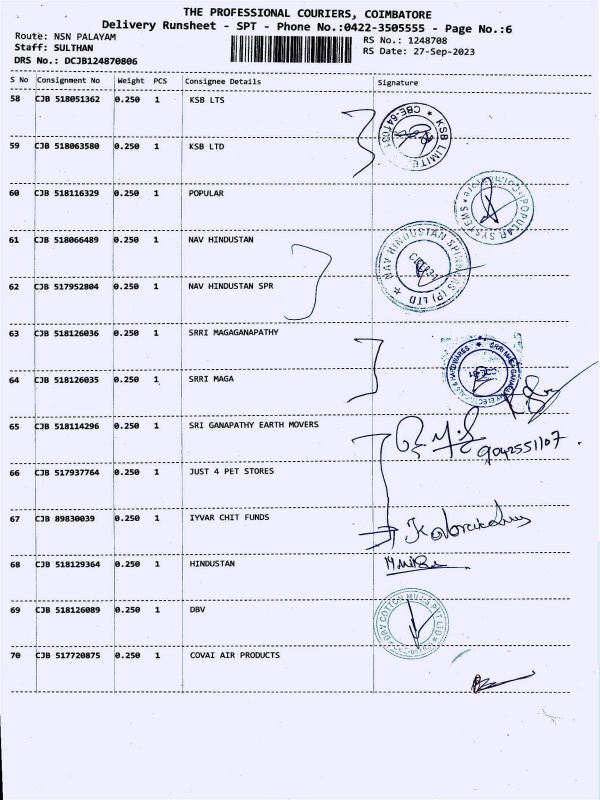 THE PROFESSIONAL COURIERS, COIMBATORE
Delivery Runsheet - SPT - Phone No.:0422-3505555 - Page No.:6
Route: NSN PALAYAM
RS No.: 1248708
Staff: SULTHAN
RS Date: 27-Sep-2023
DRS No.: DCJB124870806
S No Consignment No Weight PCS Consignee Details Signature
58 CJB 518051362 0.250 1 KSB LTS
KSB LIMITE
59 CJB 518063580 0.250 1 KSB LTD
60 CJB 518116329 0.250 1 POPULAR
POPULAR SYSTEMS
61 CJB 518066489 0.250 1 NAV HINDUSTAN
NAV HINDUSTAN SPINNERS (P) LTD
62 CJB 517952804 0.250 1 NAV HINDUSTAN SPR
63 CJB 518126036 0.250 1 SRRI MAGAGANAPATHY
64 CJB 518126035 0.250 1 SRRI MAGA
65 CJB 518114296 0.250 1 SRI GANAPATHY EARTH MOVERS
9042551107.
66 CJB 517937764 0.250 1 JUST 4 PET STORES
67 CJB 89830039 0.250 1 IYVAR CHIT FUNDS
68 CJB 518129364 0.250 1 HINDUSTAN
69 CJB 518126089 0.250 1 DBV
DBV COTTON MILLS PVT LTD
70 CJB 517720875 0.250 1 COVAI AIR PRODUCTS